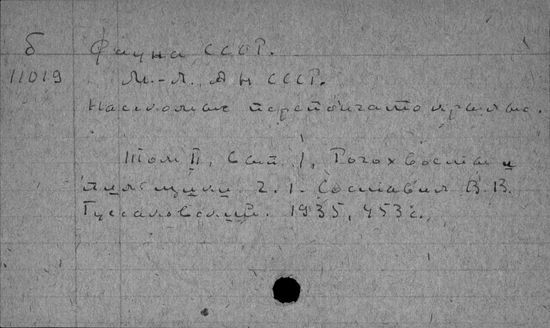 б Фауна СССР.
11019 М.-Л. АН СССР.
Насекомые перепончатокрылые.
Том II, вып. 1, Рогохвосты и
пилильщики. ч. 1. Составил В. В.
Гуссаковский. 1935, 453 с.